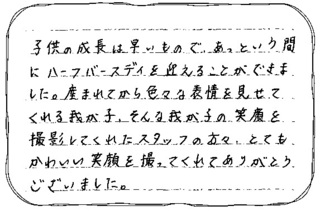 子供の成長は早いもので、あっという間
にハーフバースデイを迎えることができま
した。産まれてから色々な表情を見せて
くれる我が子、そんな我が子の笑顔を
撮影してくれたスタッフの方々、とても
かわいい笑顔を撮ってくれてありがとう
ございました。